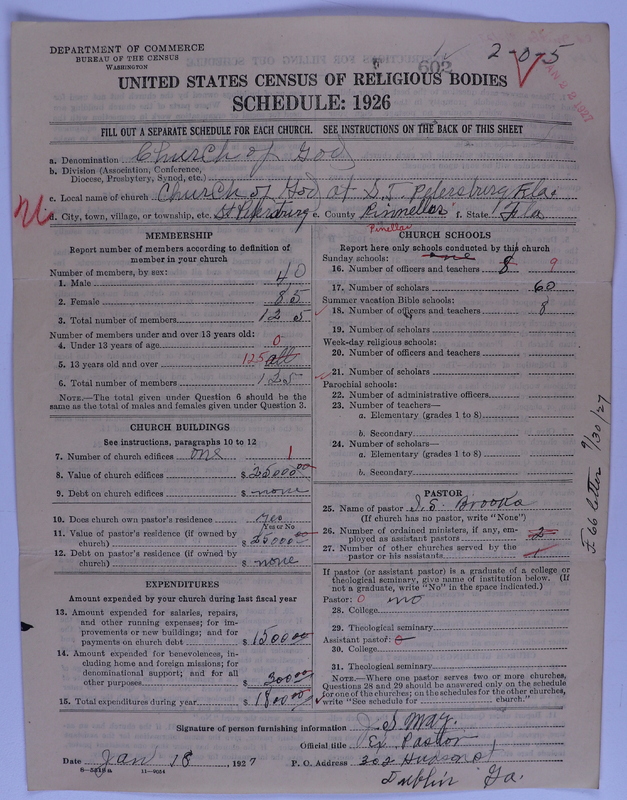 DEPARTMENT OF COMMERCE
BUREAU OF THE CENSUS
WASHINGTON
602
2-0-5
UNITED STATES CENSUS OF RELIGIOUS BODIES
SCHEDULE: 1926
FILL OUT A SEPARATE SCHEDULE FOR EACH CHURCH. SEE INSTRUCTIONS ON THE BACK OF THIS SHEET
a. Denomination Church of God
b. Division (Association, Conference,
Diocese, Presbytery, Synod, etc.)
c. Local name of church Church of God at S.T. Petersburg Fla.
d. City, town, village, or township, etc. St Petersburg e. County Pinnellas f. State Fla
Pinellas
MEMBERSHIP
Report number of members according to definition of
member in your church
Number of members, by sex:
1. Male 40
2. Female 85
3. Total number of members 125
Number of members under and over 13 years old:
4. Under 13 years of age 0
5. 13 years old and over 125 all
6. Total number of members 125
NOTE.—The total given under Question 6 should be the
same as the total of males and females given under Question 3.
CHURCH BUILDINGS
See instructions, paragraphs 10 to 12
7. Number of church edifices one 1
8. Value of church edifices $25000.00
9. Debt on church edifices $ none
10. Does church own pastor's residence yes
Yes or No
11. Value of pastor's residence (if owned by
church) $ 2500000
12. Debt on pastor's residence (if owned by
church) $ none
EXPENDITURES
Amount expended by your church during last fiscal year
13. Amount expended for salaries, repairs,
and other running expenses; for im-
provements or new buildings; and for
payments on church debt $ 150000
14. Amount expended for benevolences, in-
cluding home and foreign missions; for
denominational support; and for all
other purposes $ 30000
15. Total expenditures during year $ 180000
CHURCH SCHOOLS
Report here only schools conducted by this church
Sunday schools: one
16. Number of officers and teachers 8 9
17. Number of scholars 60
Summer vacation Bible schools:
18. Number of officers and teachers 8
19. Number of scholars
Week-day religious schools:
20. Number of officers and teachers
21. Number of scholars
Parochial schools:
22. Number of administrative officers
23. Number of teachers—
a. Elementary (grades 1 to 8)
b. Secondary
24. Number of scholars—
a. Elementary (grades 1 to 8)
b. Secondary
PASTOR
25. Name of pastor J.S. Brooks
(If church has no pastor, write "None")
26. Number of ordained ministers, if any, em-
ployed as assistant pastors 2
27. Number of other churches served by the
pastor or his assistants 1
If pastor (or assistant pastor) is a graduate of a college or
theological seminary, give name of institution below. (If
not a graduate, write "No" in the space indicated.)
Pastor: 0 no
28. College
29. Theological seminary
Assistant pastor: 0
30. College
31. Theological seminary
NOTE.—Where one pastor serves two or more churches,
Questions 28 and 29 should be answered only on the schedule
for one of the churches; on the schedules for the other churches,
write "See schedule for church."
F 66 letter 9/30/27
Signature of person furnishing information J.S. May.
Official title Ex Pastor
Date Jan 18 1927 P. O. Address 302 Hudson st
Dublin Ga.
8-5419a 11-9054